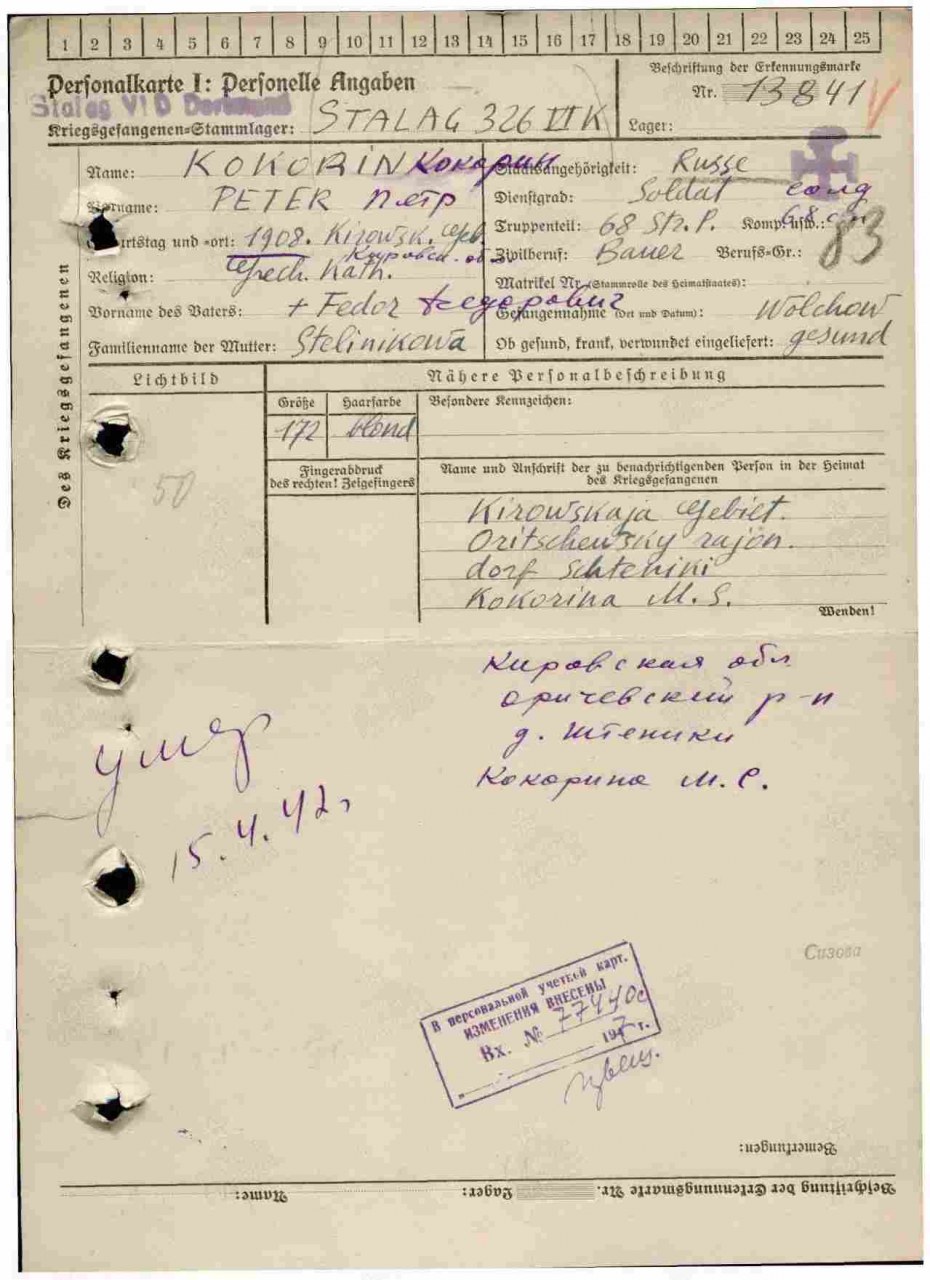 1 2 3 4 5 6 7 8 9 10 11 12 13 14 15 16 17 18 19 20 21 22 23 24 25
Personalkarte I: Personelle Angaben
Stalag VI D Dortmund
Kriegsgefangenen-Stammlager: STALAG 326 VI K
Beschriftung der Erkennungsmarke
Nr. 13841
Lager:
Des Kriegsgefangenen
Name: KOKORIN Кокорин
Vorname: PETER Петр
Geburtstag und -ort: 1908. Kirowsk. Geb.
Кировск. об
Religion: Grech. Kath.
Vorname des Vaters: + Fedor Федорович
Familienname der Mutter: Stelinikowa
Staatsangehörigkeit: Russe
Dienstgrad: Soldat солд
Truppenteil: 68 Str. P. Komp. usw.: 68 сп
Zivilberuf: Bauer Berufs-Gr.: 83
Matrikel Nr. (Stammrolle des Heimatstaates):
Gefangennahme (Ort und Datum): Wolchow
Ob gesund, krank, verwundet eingeliefert: gesund
Lichtbild
50
Nähere Personalbeschreibung
Größe Haarfarbe Besondere Kennzeichen:
172 blond
Fingerabdruck
des rechten! Zeigefingers
Name und Anschrift der zu benachrichtigenden Person in der Heimat
des Kriegsgefangenen
Kirowskaja Gebiet.
Oritschewsky rajon.
dorf Schteniki
Kokorina M. S.
Wenden!
Кировская обл
Оричевский р-н
д. Штеники
Кокорина М. С.
умер
15.4.42г
Сизова
В персональной учетной карт.
ИЗМЕНЕНИЯ ВНЕСЕНЫ
Вх. № 77440с
1947 г.
Bemerkungen:
Beschriftung der Erkennungsmarke Nr. Lager: Name: